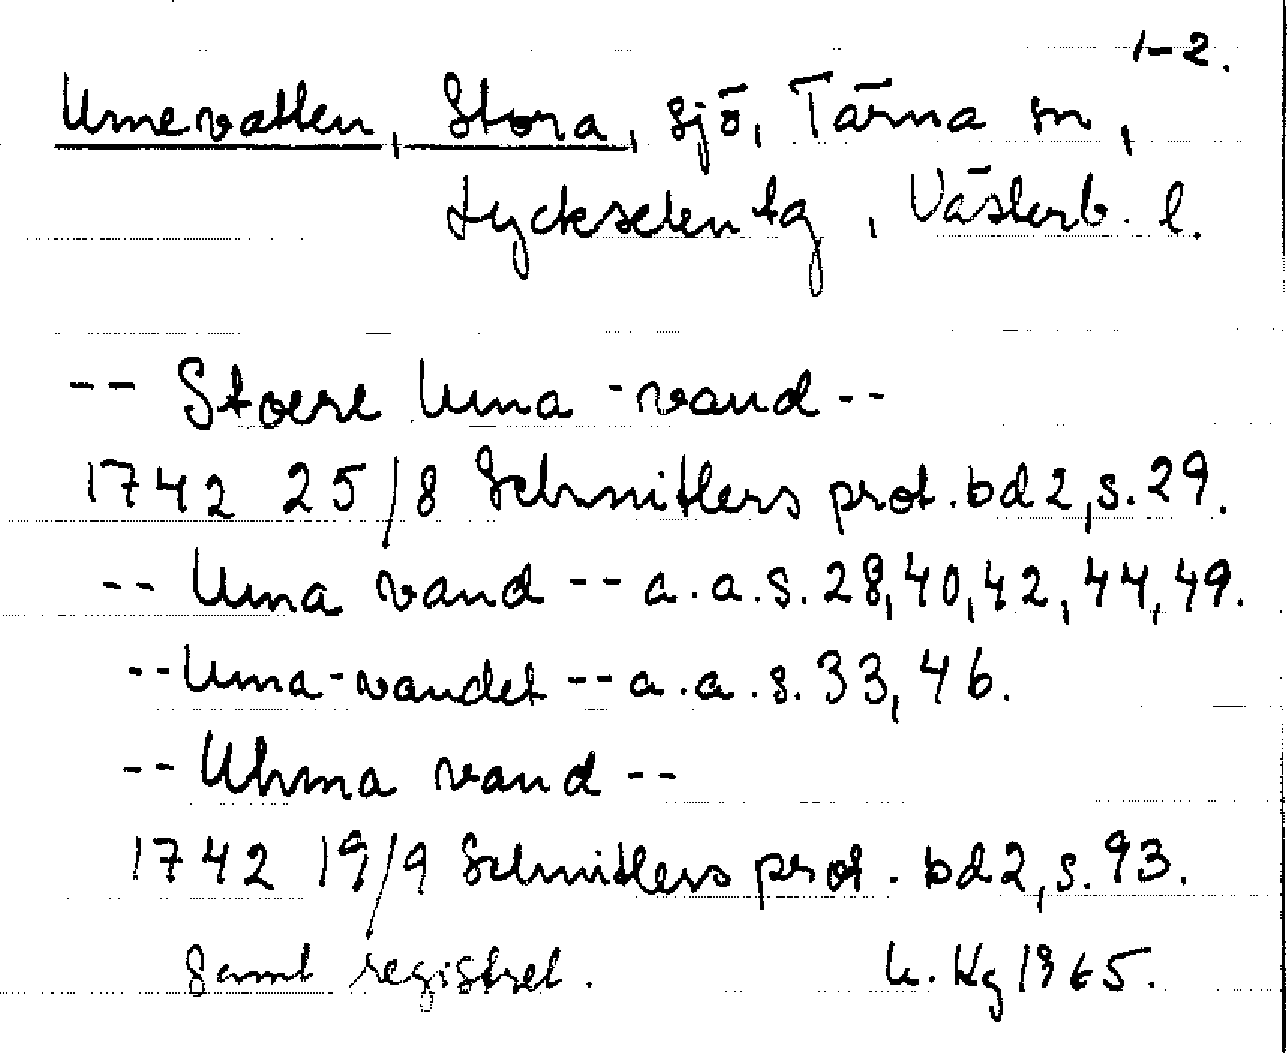 1-2.
Umevatten, Stora, sjö, Tärna sn,
Lyckselen tg, Västerb. l.
-- Stoere Uma-vand --
1742 25/8 Schnitlers prot. bd 2, s. 29.
-- Uma vand -- a.a.s. 28, 40, 42, 44, 49.
-- Uma-vandet -- a.a.s. 33, 46.
-- Uhma vand --
1742 19/9 Schnitlers prot. bd 2, s. 93.
Samt registret. K. Kg 1965.